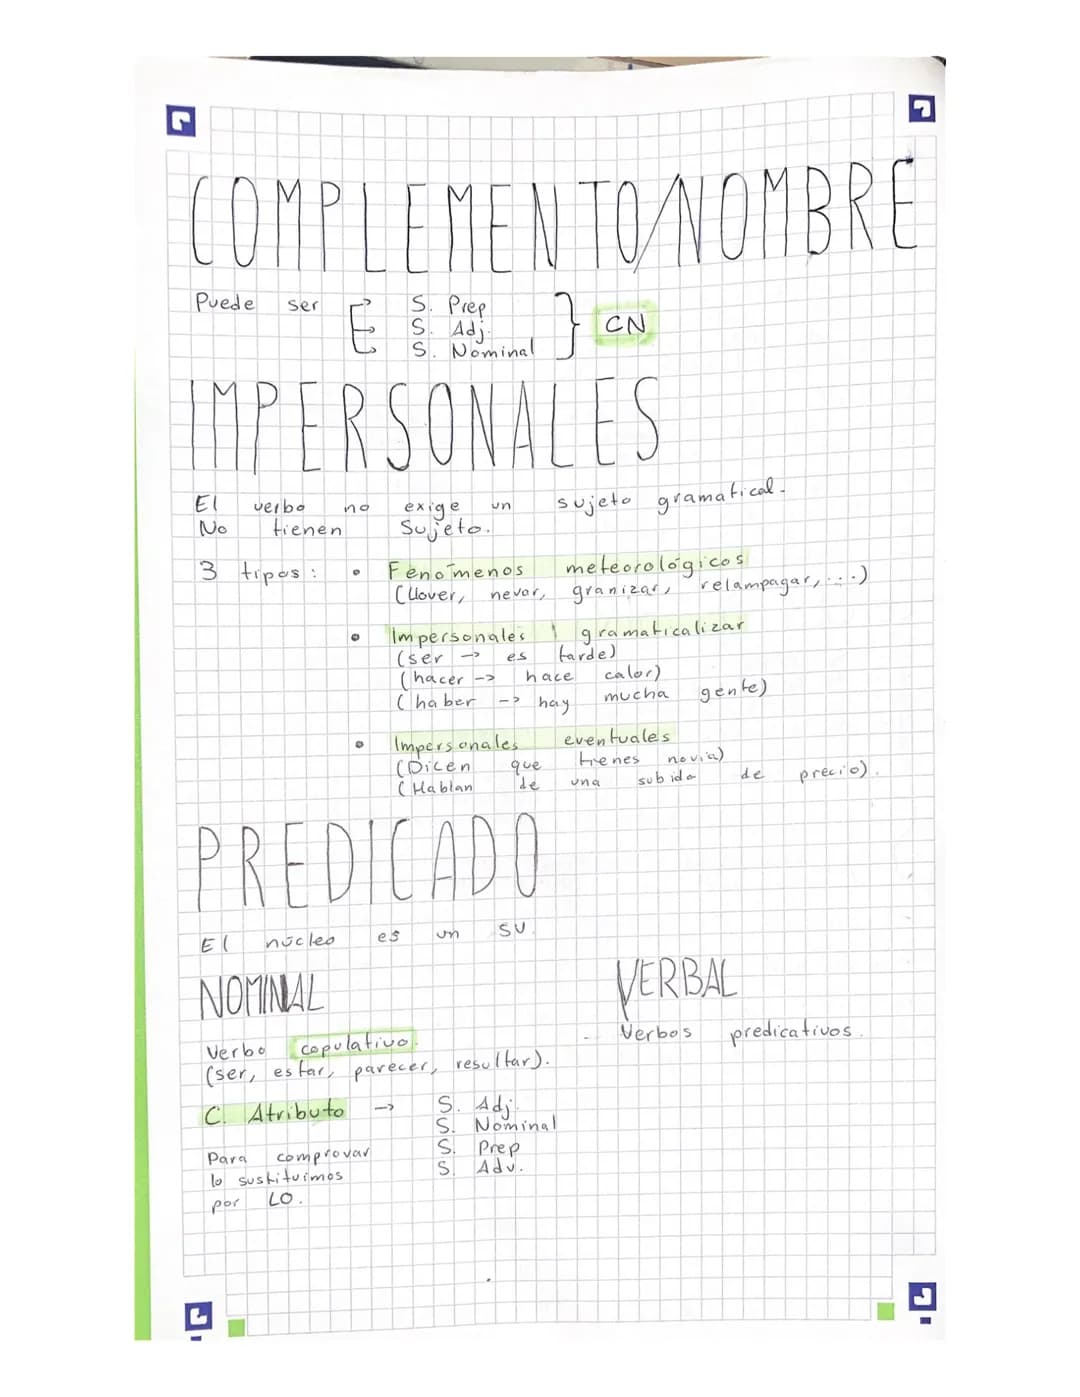 COMPLEMENTO/NOMBRE
Puede ser
S. Prep
S. Adj.
S. Nominal
CN
IMPERSONALES
El verbo no exige un sujeto gramatical.
No tienen Sujeto.
3 tipos: • Fenómenos meteorológicos
(Llover, nevar, granizar, relampagar,...)
• Impersonales gramaticalizar
(ser -> es tarde)
(hacer -> hace calor)
(haber -> hay mucha gente)
• Impersonales eventuales
(Dicen que tienes novia)
(Hablan de una subida de precio).
PREDICADO
El núcleo es un SV.
NOMINAL
Verbo copulativo.
(ser, estar, parecer, resultar).
C. Atributo -> S. Adj.
S. Nominal
S. Prep
S. Adv.
Para comprovar
lo sustituimos
por LO.
VERBAL
Verbos predicativos.